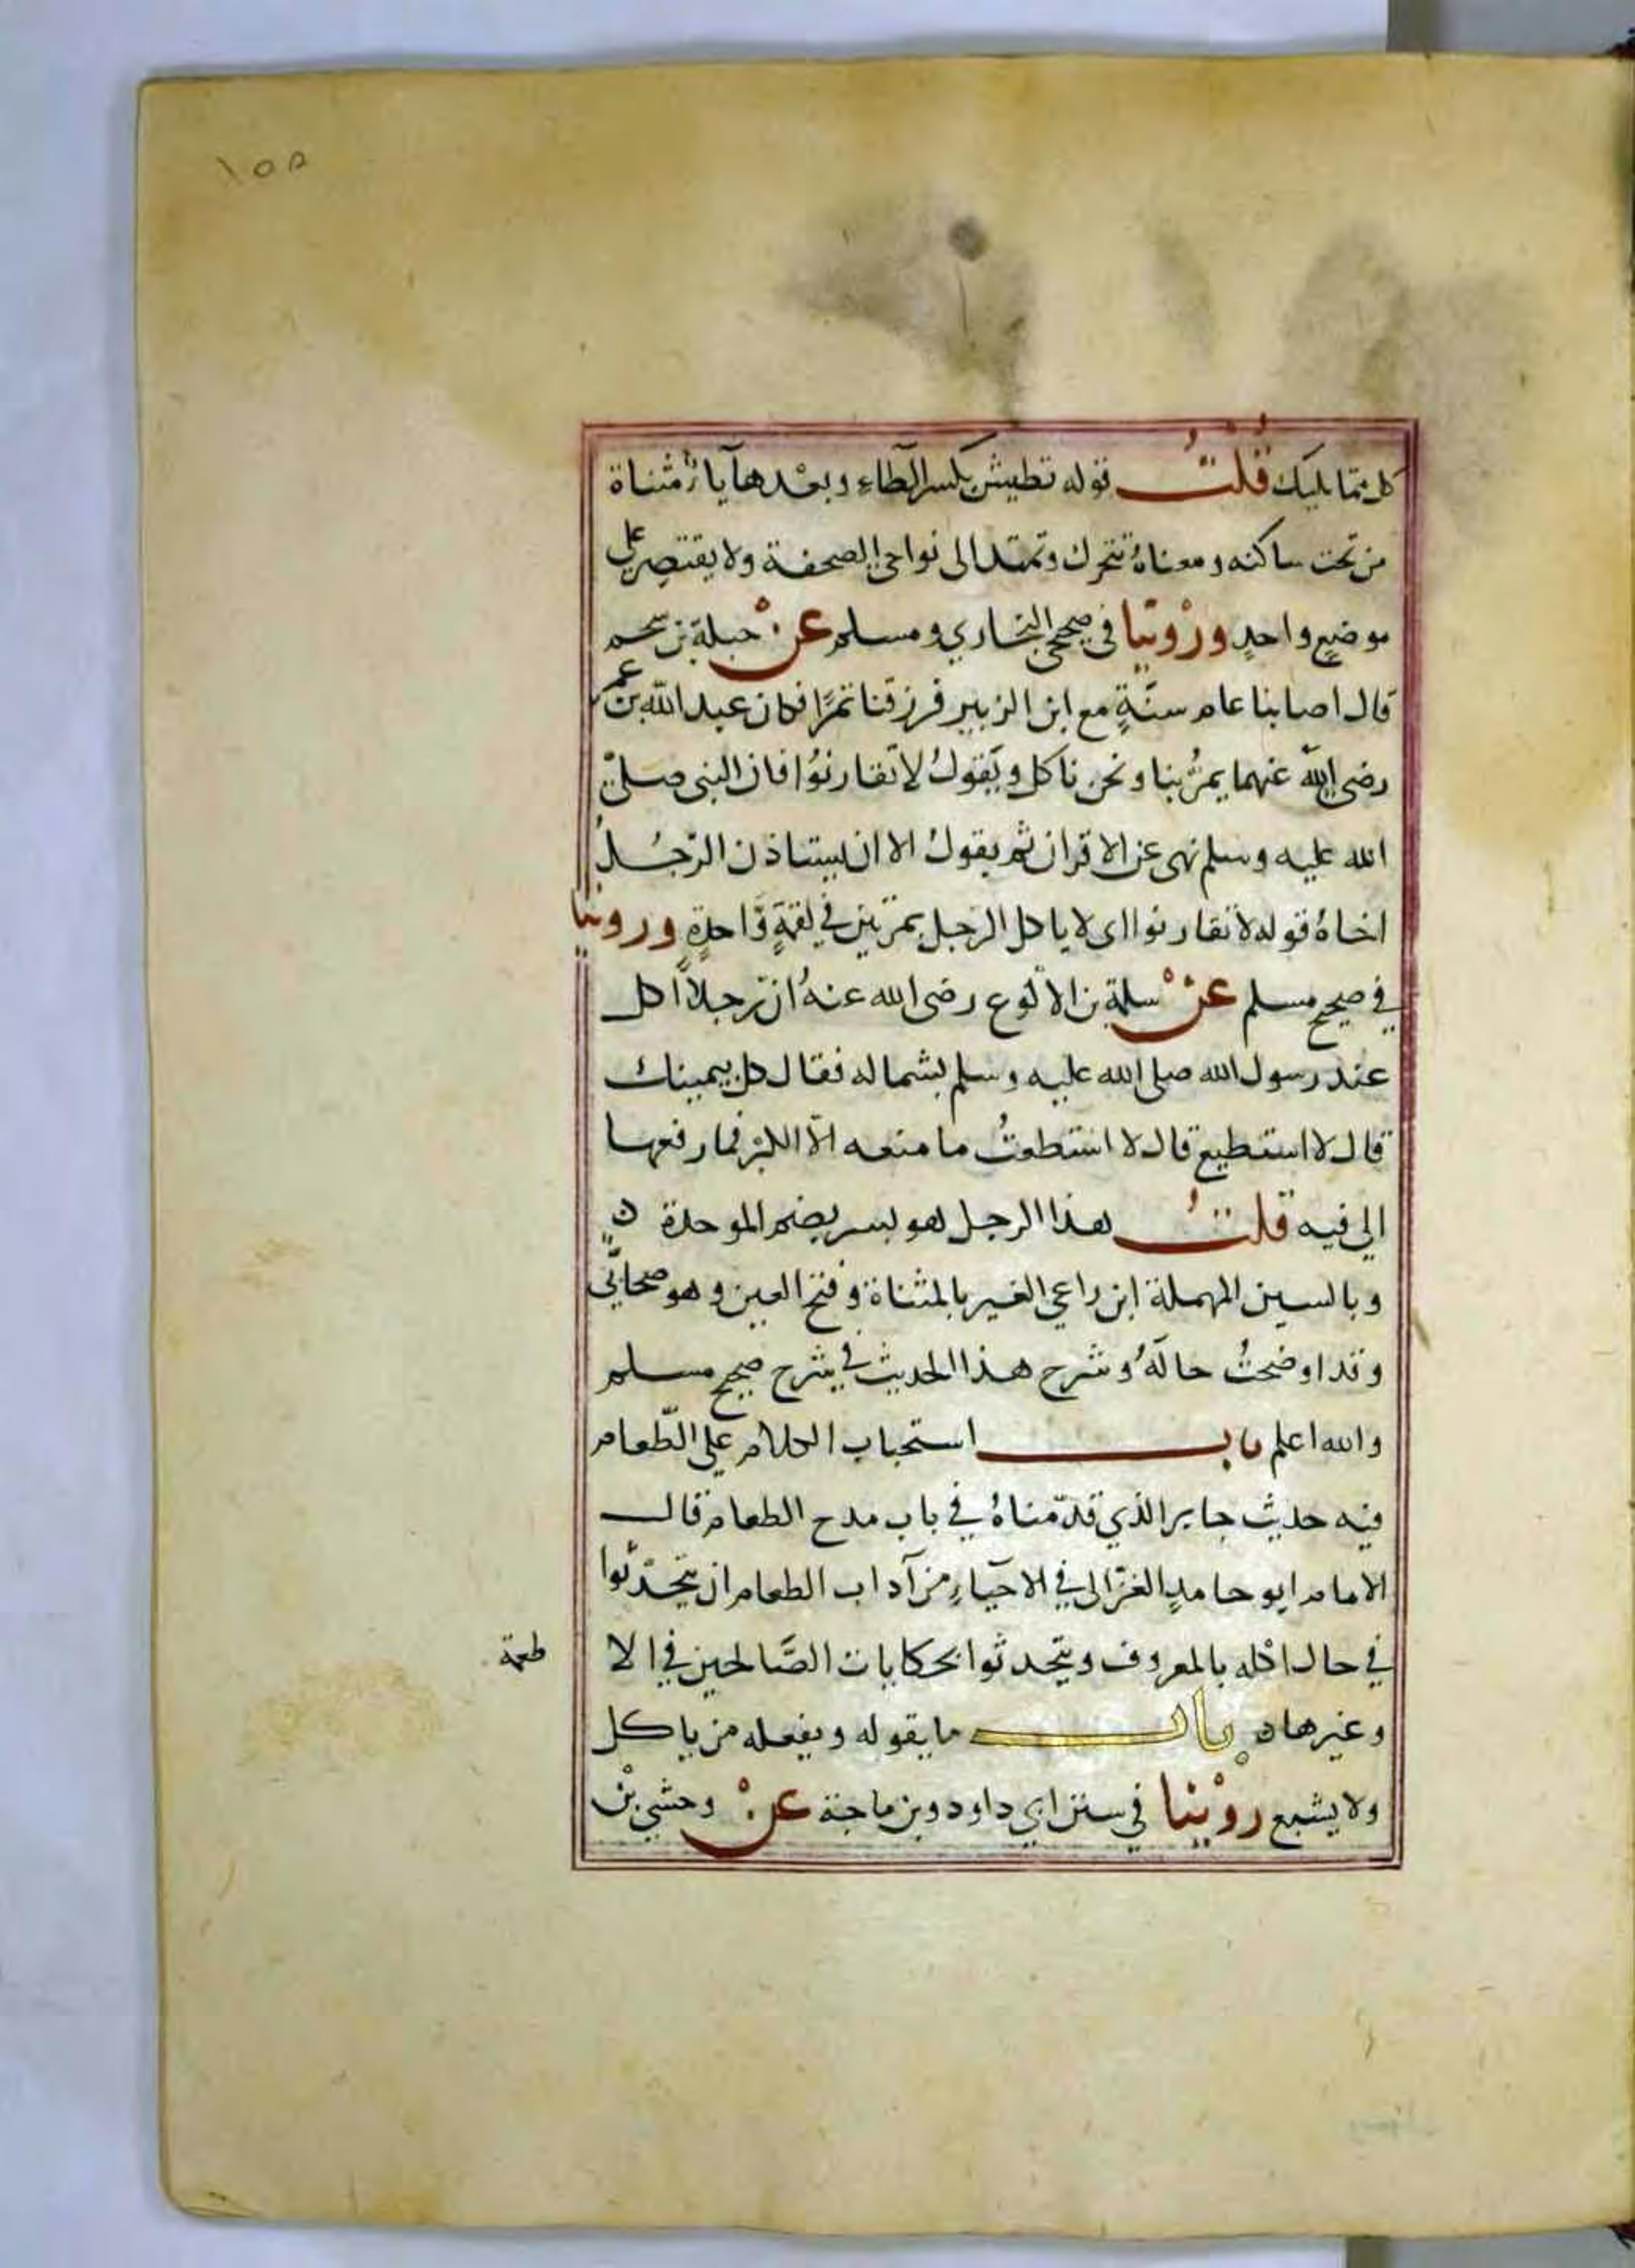 ١٥٥
كل مما يليك قُلْتُ قوله تطيش بكسر الطاءِ وبعْدها ياءٌ مثناة
من تحت ساكنه ومعناهُ تتحرك وتمتد الى نواحي الصحفة ولا يقتصر على
موضعٍ واحدٍ ورُوّينا في صحيحي البخاري ومسلم عنْ جبلة بن سحيم
قال اصابنا عام سنَةٍ مع ابن الزبير فرزقنا تمرًا فكان عبد الله بن عمر
رضى الله عنهما يمرُّ بنا ونحن ناكل ويَقولُ لا تقارنوُا فان النبى صلىّ
الله عليه وسلم نهى عن الاقران ثم يقولُ الا ان يستاذن الرّجُلُ
اخاهُ قوله لا تقارنوا اى لا ياكل الرجل تمرتين في لقمةٍ وَّاحدةٍ وروينا
في صحيح مسلم عنْ سلمة بن الاكوع رضى الله عنهُ ان رجلاً اكل
عند رسول الله صلى الله عليه وسلم بشماله فقال كل بيمينك
قال لا استطيع قال لا استطعتُ ما منعه الّا الكبْر فما رفعها
الى فيه قلتُ هذا الرجل هو بسر بضم الموحدة ن
وبالسين المهملة ابن راعي العير بالمثناة وفتح العين وهو صحابيّ
وقد اوضحتُ حالَهُ وشرح هذا الحديث في شرح صحيح مسلم
والله اعلم باب استحباب الكلام على الطّعام
فيه حديث جابر الذي قدّمناهُ في باب مدح الطعام قال
الامام ابو حامدٍ الغزّالى في الاحيَاءِ من آداب الطعام ان يتحدّثوا
في حال اكله بالمعروف ويتحدثوا بحكايات الصَّالحين في الا
طعمة
وغيرها ه باب ما يقوله ويفعله من ياكل
ولا يشبع روْينا في سنن ابي داود وبن ماجة عنْ وحشي بْن